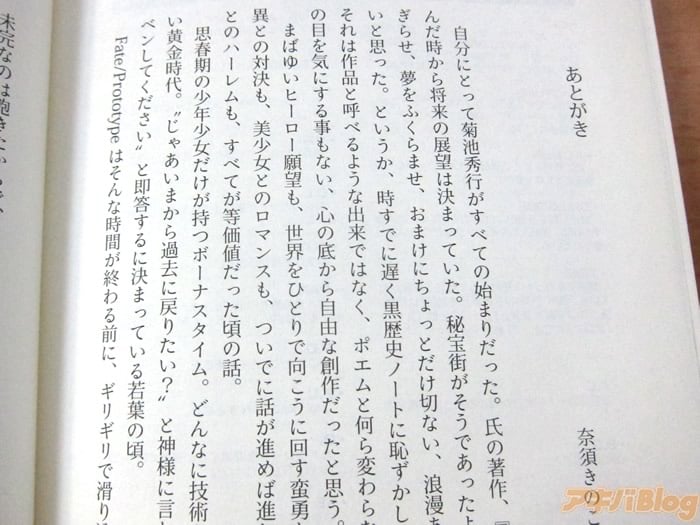 あとがき
奈須きのこ
自分にとって菊池秀行がすべての始まりだった。氏の著作、『
んだ時から将来の展望は決まっていた。秘宝街がそうであったよ
ぎらせ、夢をふくらませ、おまけにちょっとだけ切ない、浪漫あ
いと思った。というか、時すでに遅く黒歴史ノートに恥ずかし
それは作品と呼べるような出来ではなく、ポエムと何ら変わらな
の目を気にする事もない、心の底から自由な創作だったと思う。
まばゆいヒーロー願望も、世界をひとりで向こうに回す蛮勇も
異との対決も、美少女とのロマンスも、ついでに話が進めば進
とのハーレムも、すべてが等価値だった頃の話。
思春期の少年少女だけが持つボーナスタイム。どんなに技術
い黄金時代。〝じゃあいまから過去に戻りたい？〟と神様に言
ベンしてください〟と即答するに決まっている若葉の頃。
Fate/Prototype はそんな時間が終わる前に、ギリギリで滑り
未完なのは飽きた
アキバBlog